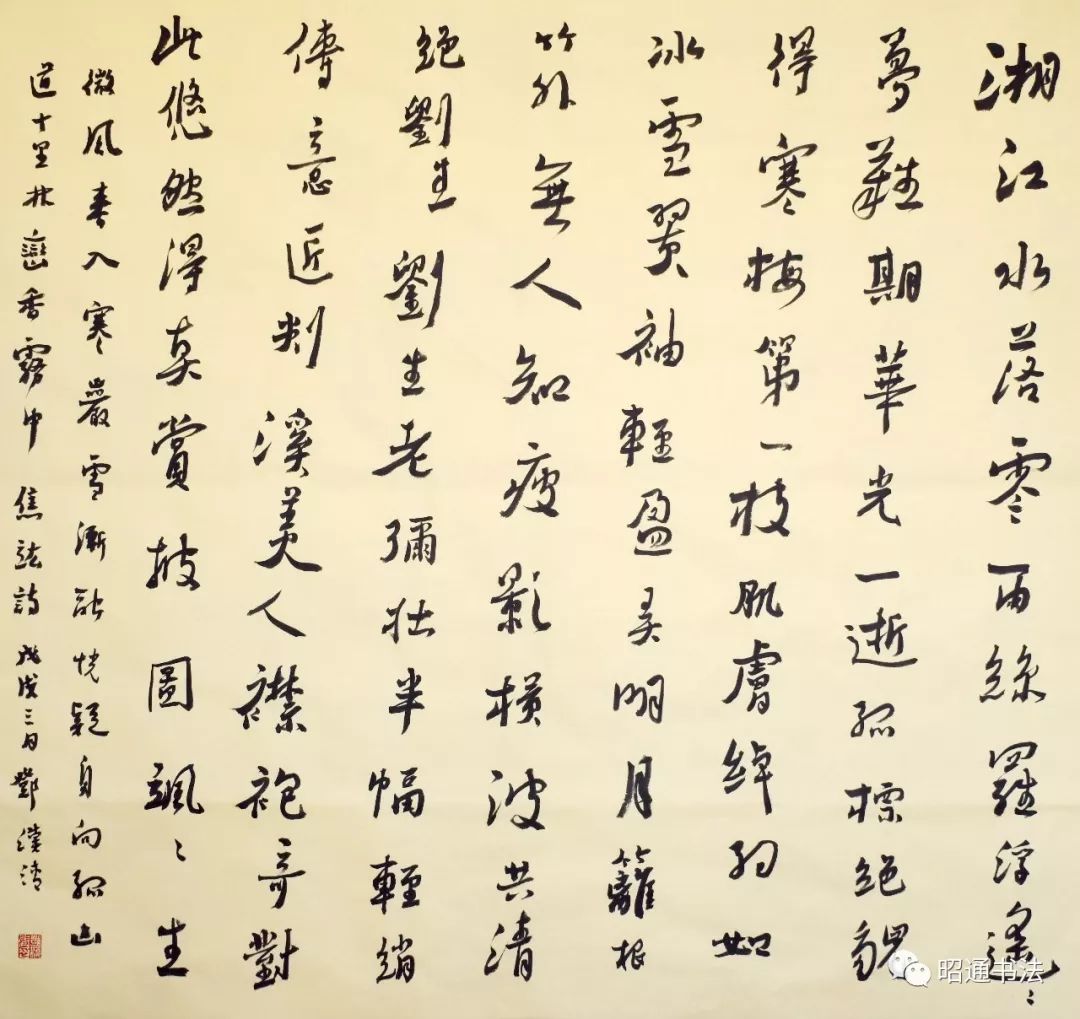 湘江水落零雨絲羅浮遙〻
夢難期華光一逝孤標絕貌
得寒梅第一枝肌膚綽約如
冰雪翠袖輕盈弄明月籬根
竹外無人知瘦影橫波共清
絕劉生劉生老彌壯半幅輕綃
傳意匠剡溪美人襟袍奇對
此悠然得真賞披圖颯〻生
微風春入寒巖雪漸融恍疑身向孤山
道十里林巒香霧中 焦竑詩 戊戌三月鄧漢清
昭通书法